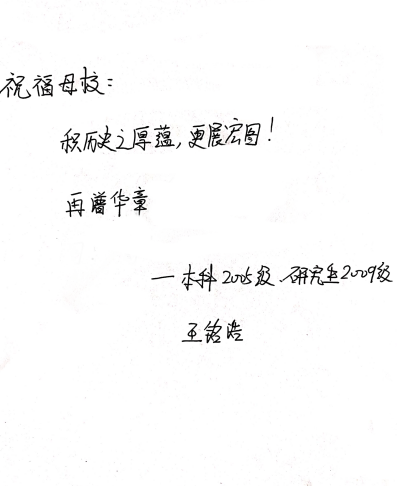 祝福母校：
积历史之厚蕴，更展宏图！
再谱华章
—本科2005级、研究生2009级
王铭浩